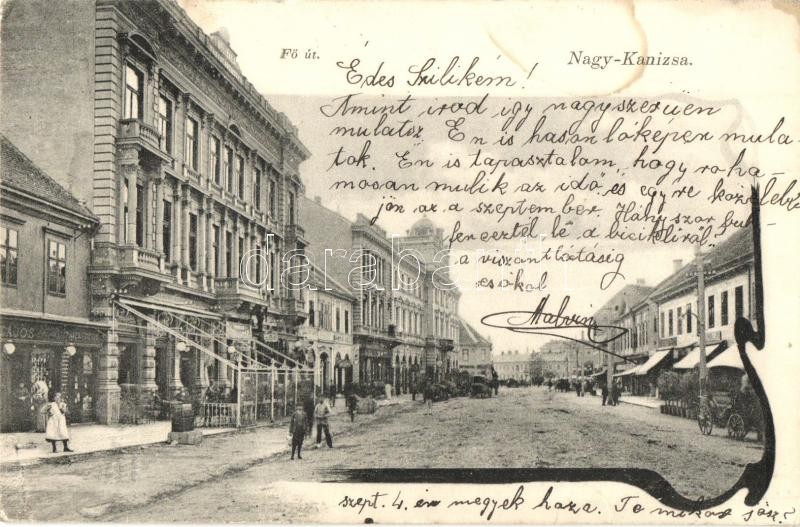 Fő út.
Nagy-Kanizsa.
Édes Szilikém!
Amint irod igy nagyszerüen
mulatsz Én is hasonlóképen mula-
tok. Én is tapasztalom, hogy roha-
mosan mulik az idő és egyre közelebb
jön az a szeptember. Hányszor buk-
fenceztél le a bicikliról.
a viszontlátásig
csókol
Malvin
szept. 4. én megyek haza. Te mikor jösz?
AJOS
darabanth.com